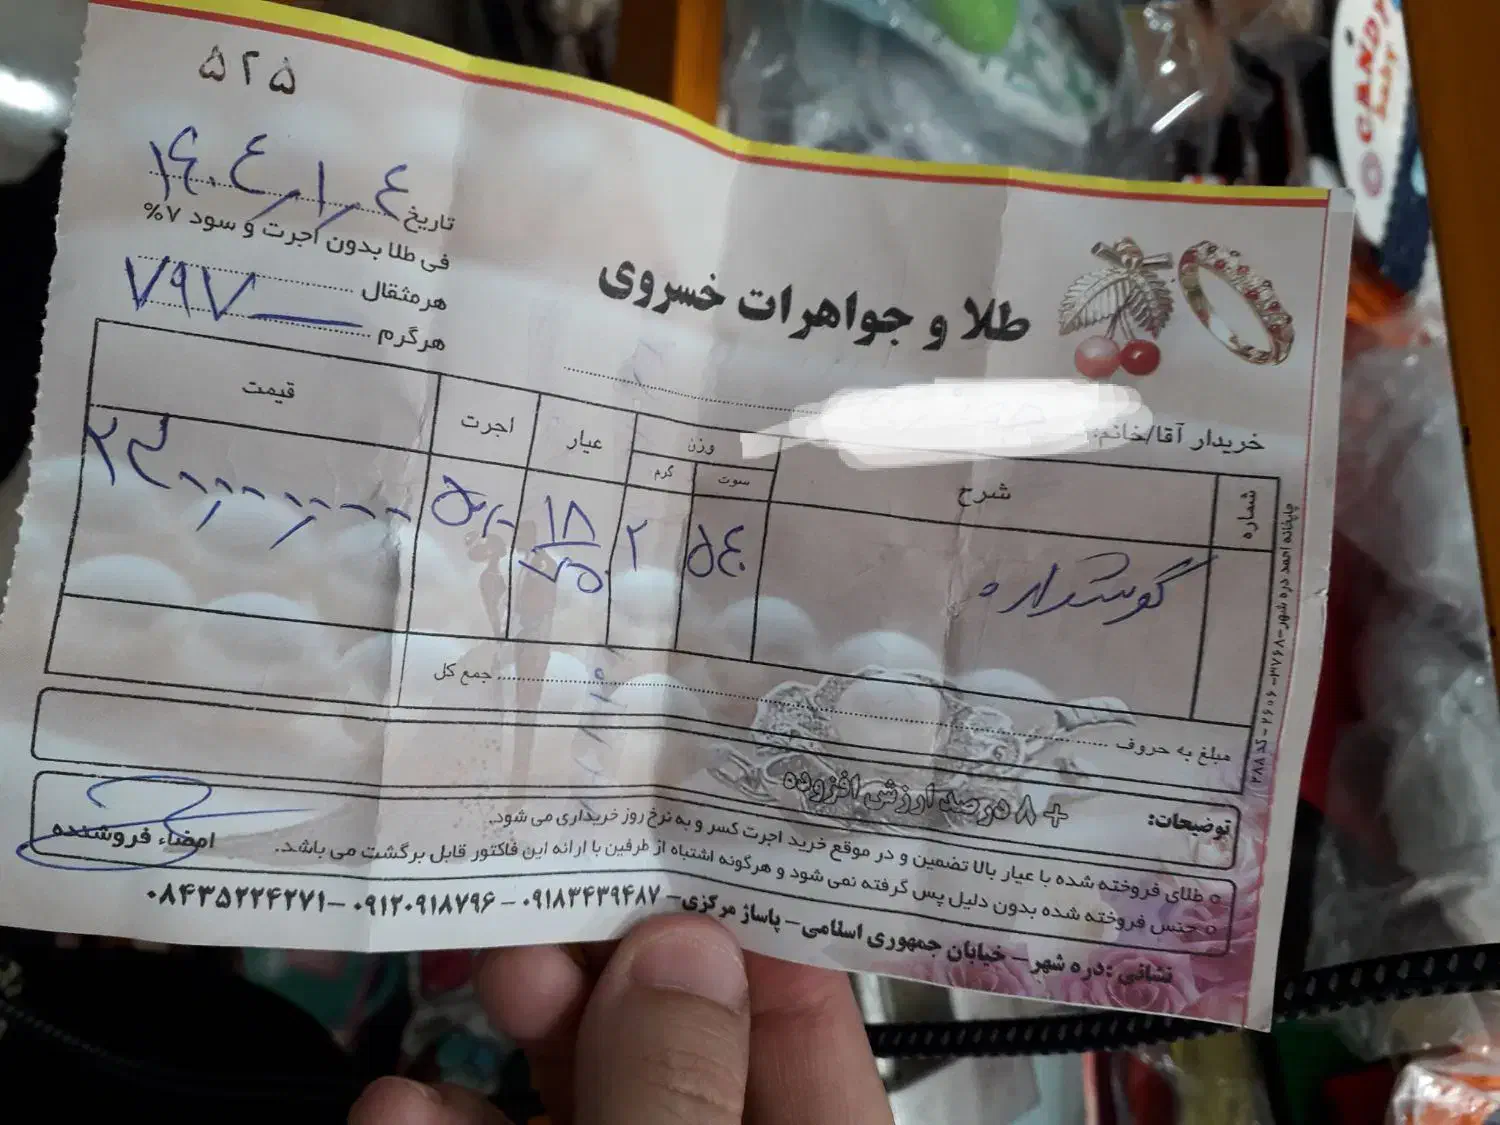 ۵۲۵
تاریخ ۱۴۰۴/۱/۰۴
فی طلا بدون اجرت و سود ۷%
هر مثقال
هرگرم ۷۹۷
طلا و جواهرات خسروی
خریدار آقا/خانم:
شماره شرح وزن عیار اجرت قیمت
سوت گرم
گوشواره ۵۴۰ ۲ ۱۸ ۷۵۰
جمع کل
مبلغ به حروف
توضیحات: + ۸ درصد ارزش افزوده
○ طلای فروخته شده با عیار بالا تضمین و در موقع خرید اجرت کسر و به نرخ روز خریداری می شود.
○ جنس فروخته شده بدون دلیل پس گرفته نمی شود و هرگونه اشتباه از طرفین با ارائه این فاکتور قابل برگشت می باشد.
امضاء فروشنده
نشانی: دره شهر – خیابان جمهوری اسلامی – پاساژ مرکزی – ۰۹۱۸۳۴۳۹۴۸۷ – ۰۹۱۲۰۹۱۸۷۹۶ – ۰۸۴۳۵۲۲۴۲۷۱
چاپخانه احمد دره شهر
CANDY